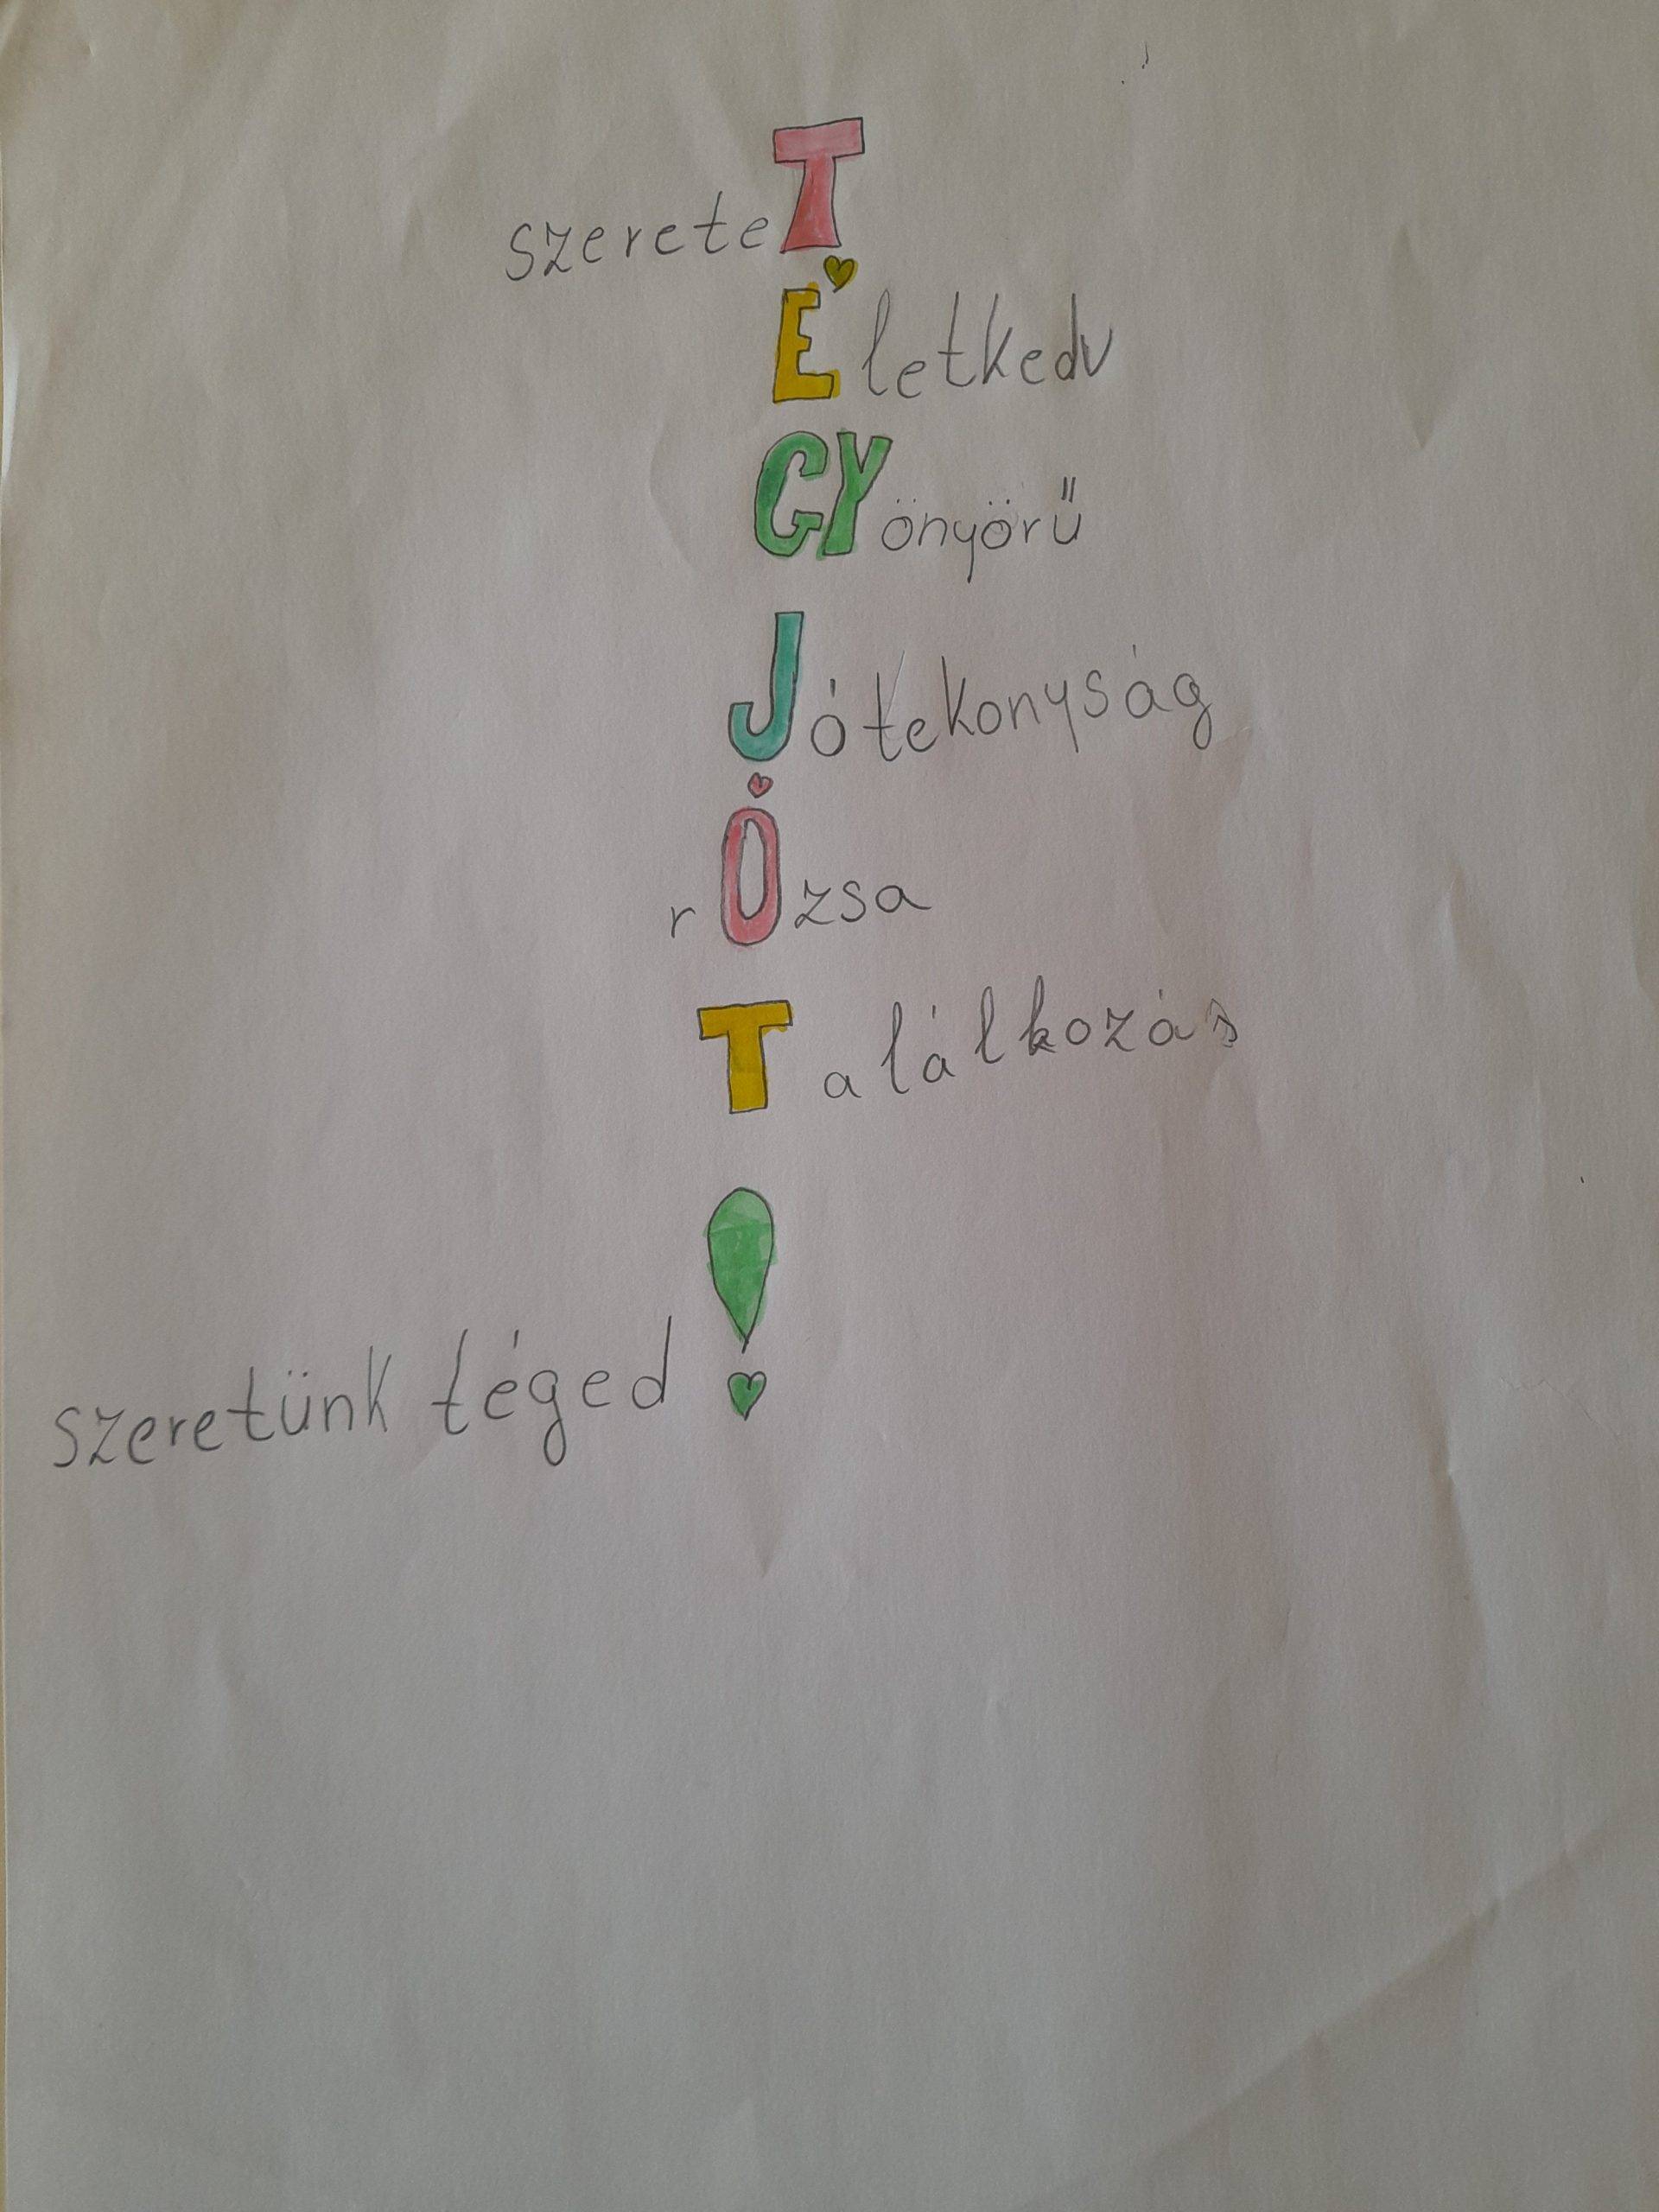 szereteT
Életkedv
GYönyörű
Jótekonyság
rÓzsa
Találkozás
szeretünk téged!